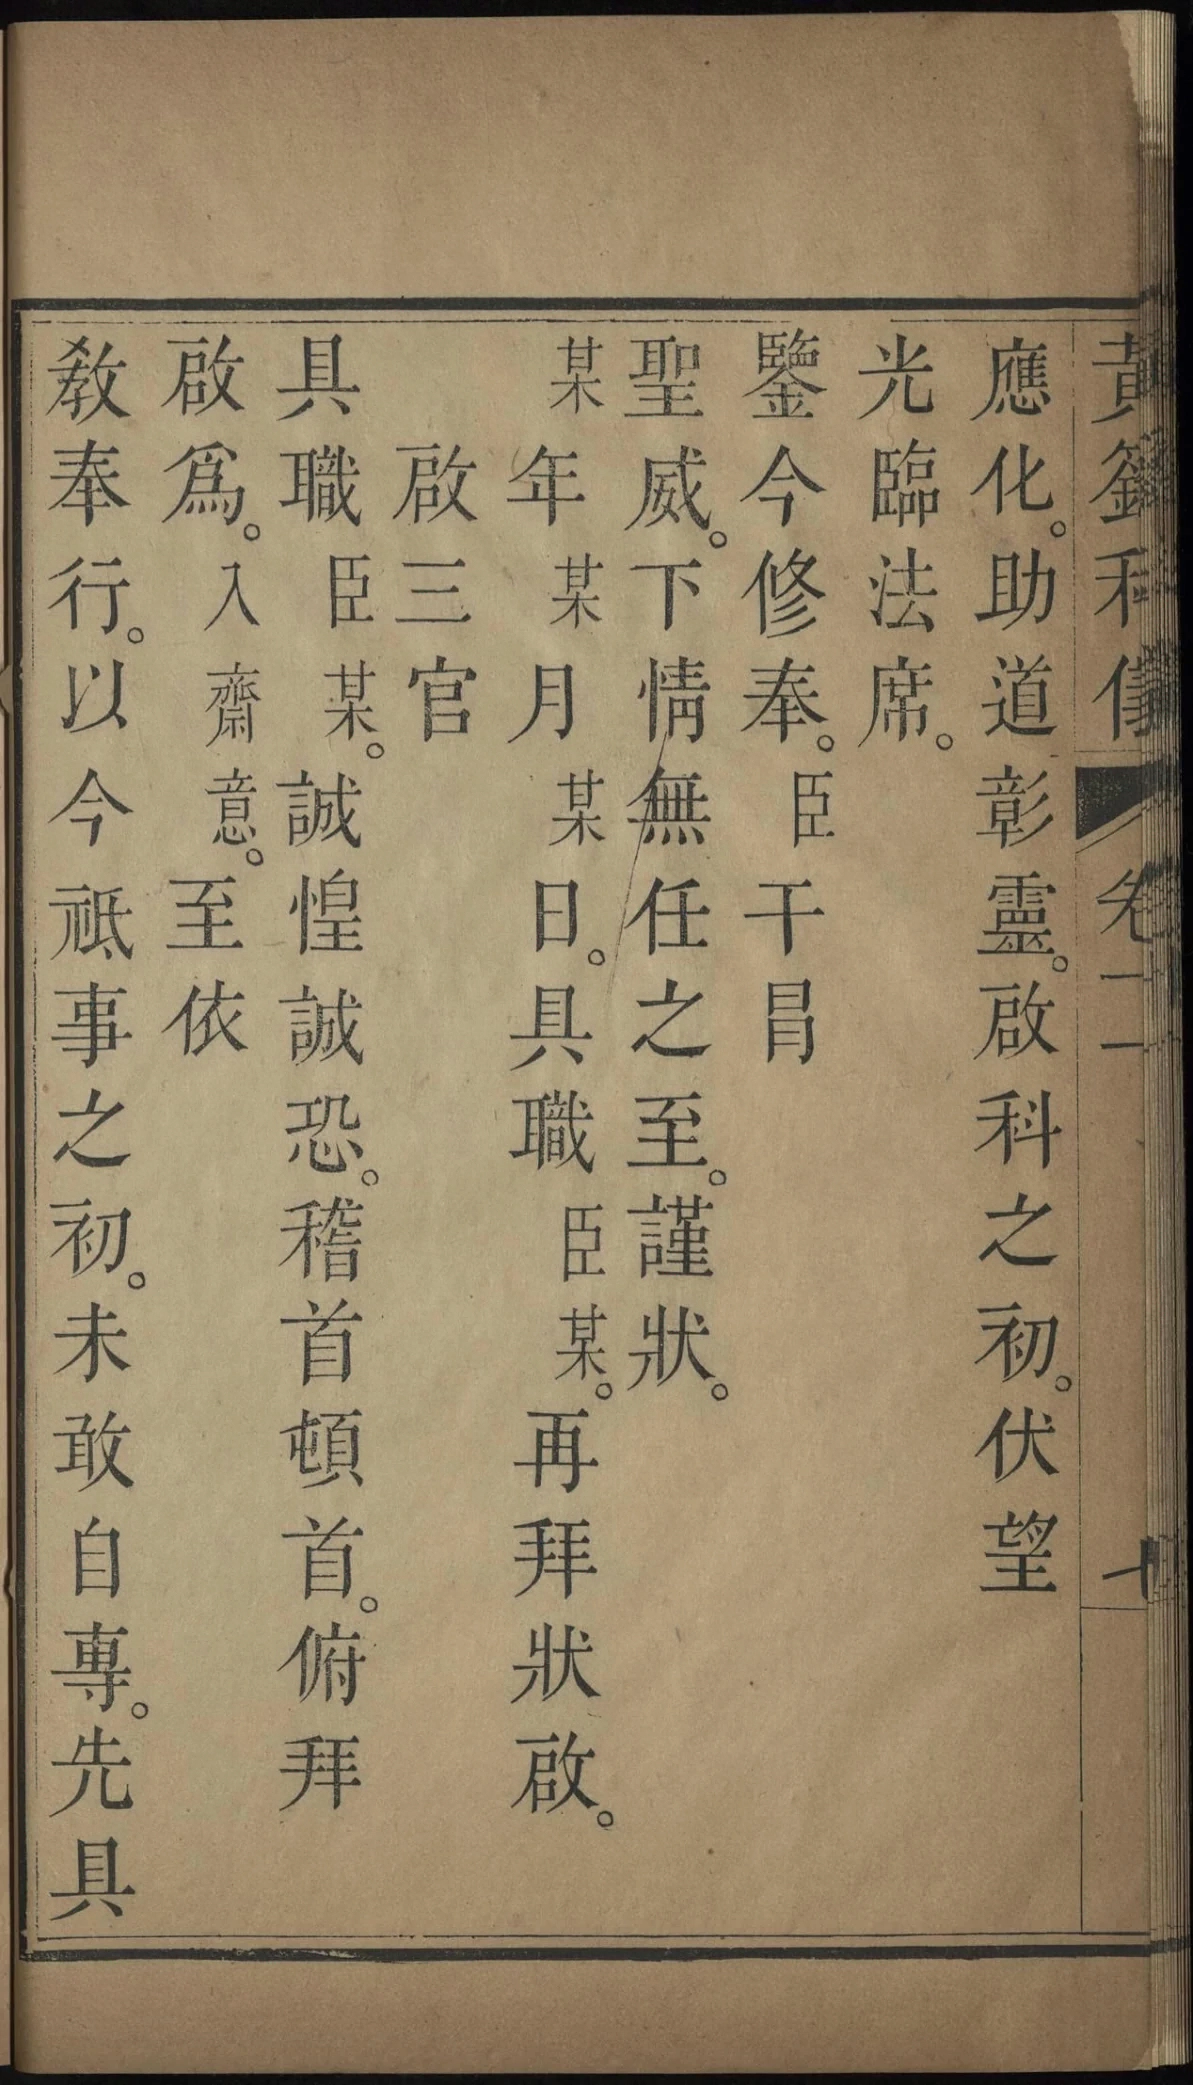 黃籙科儀 卷二 十
應化。助道彰靈。啟科之初。伏望
光臨法席。
鑒今修奉。臣干冒
聖威。下情無任之至。謹狀。
某年某月某日。具職臣某。再拜狀啟。
啟三官
具職臣某。誠惶誠恐。稽首頓首。俯拜
啟爲。入齋意。至依
教奉行。以今祗事之初。未敢自專。先具